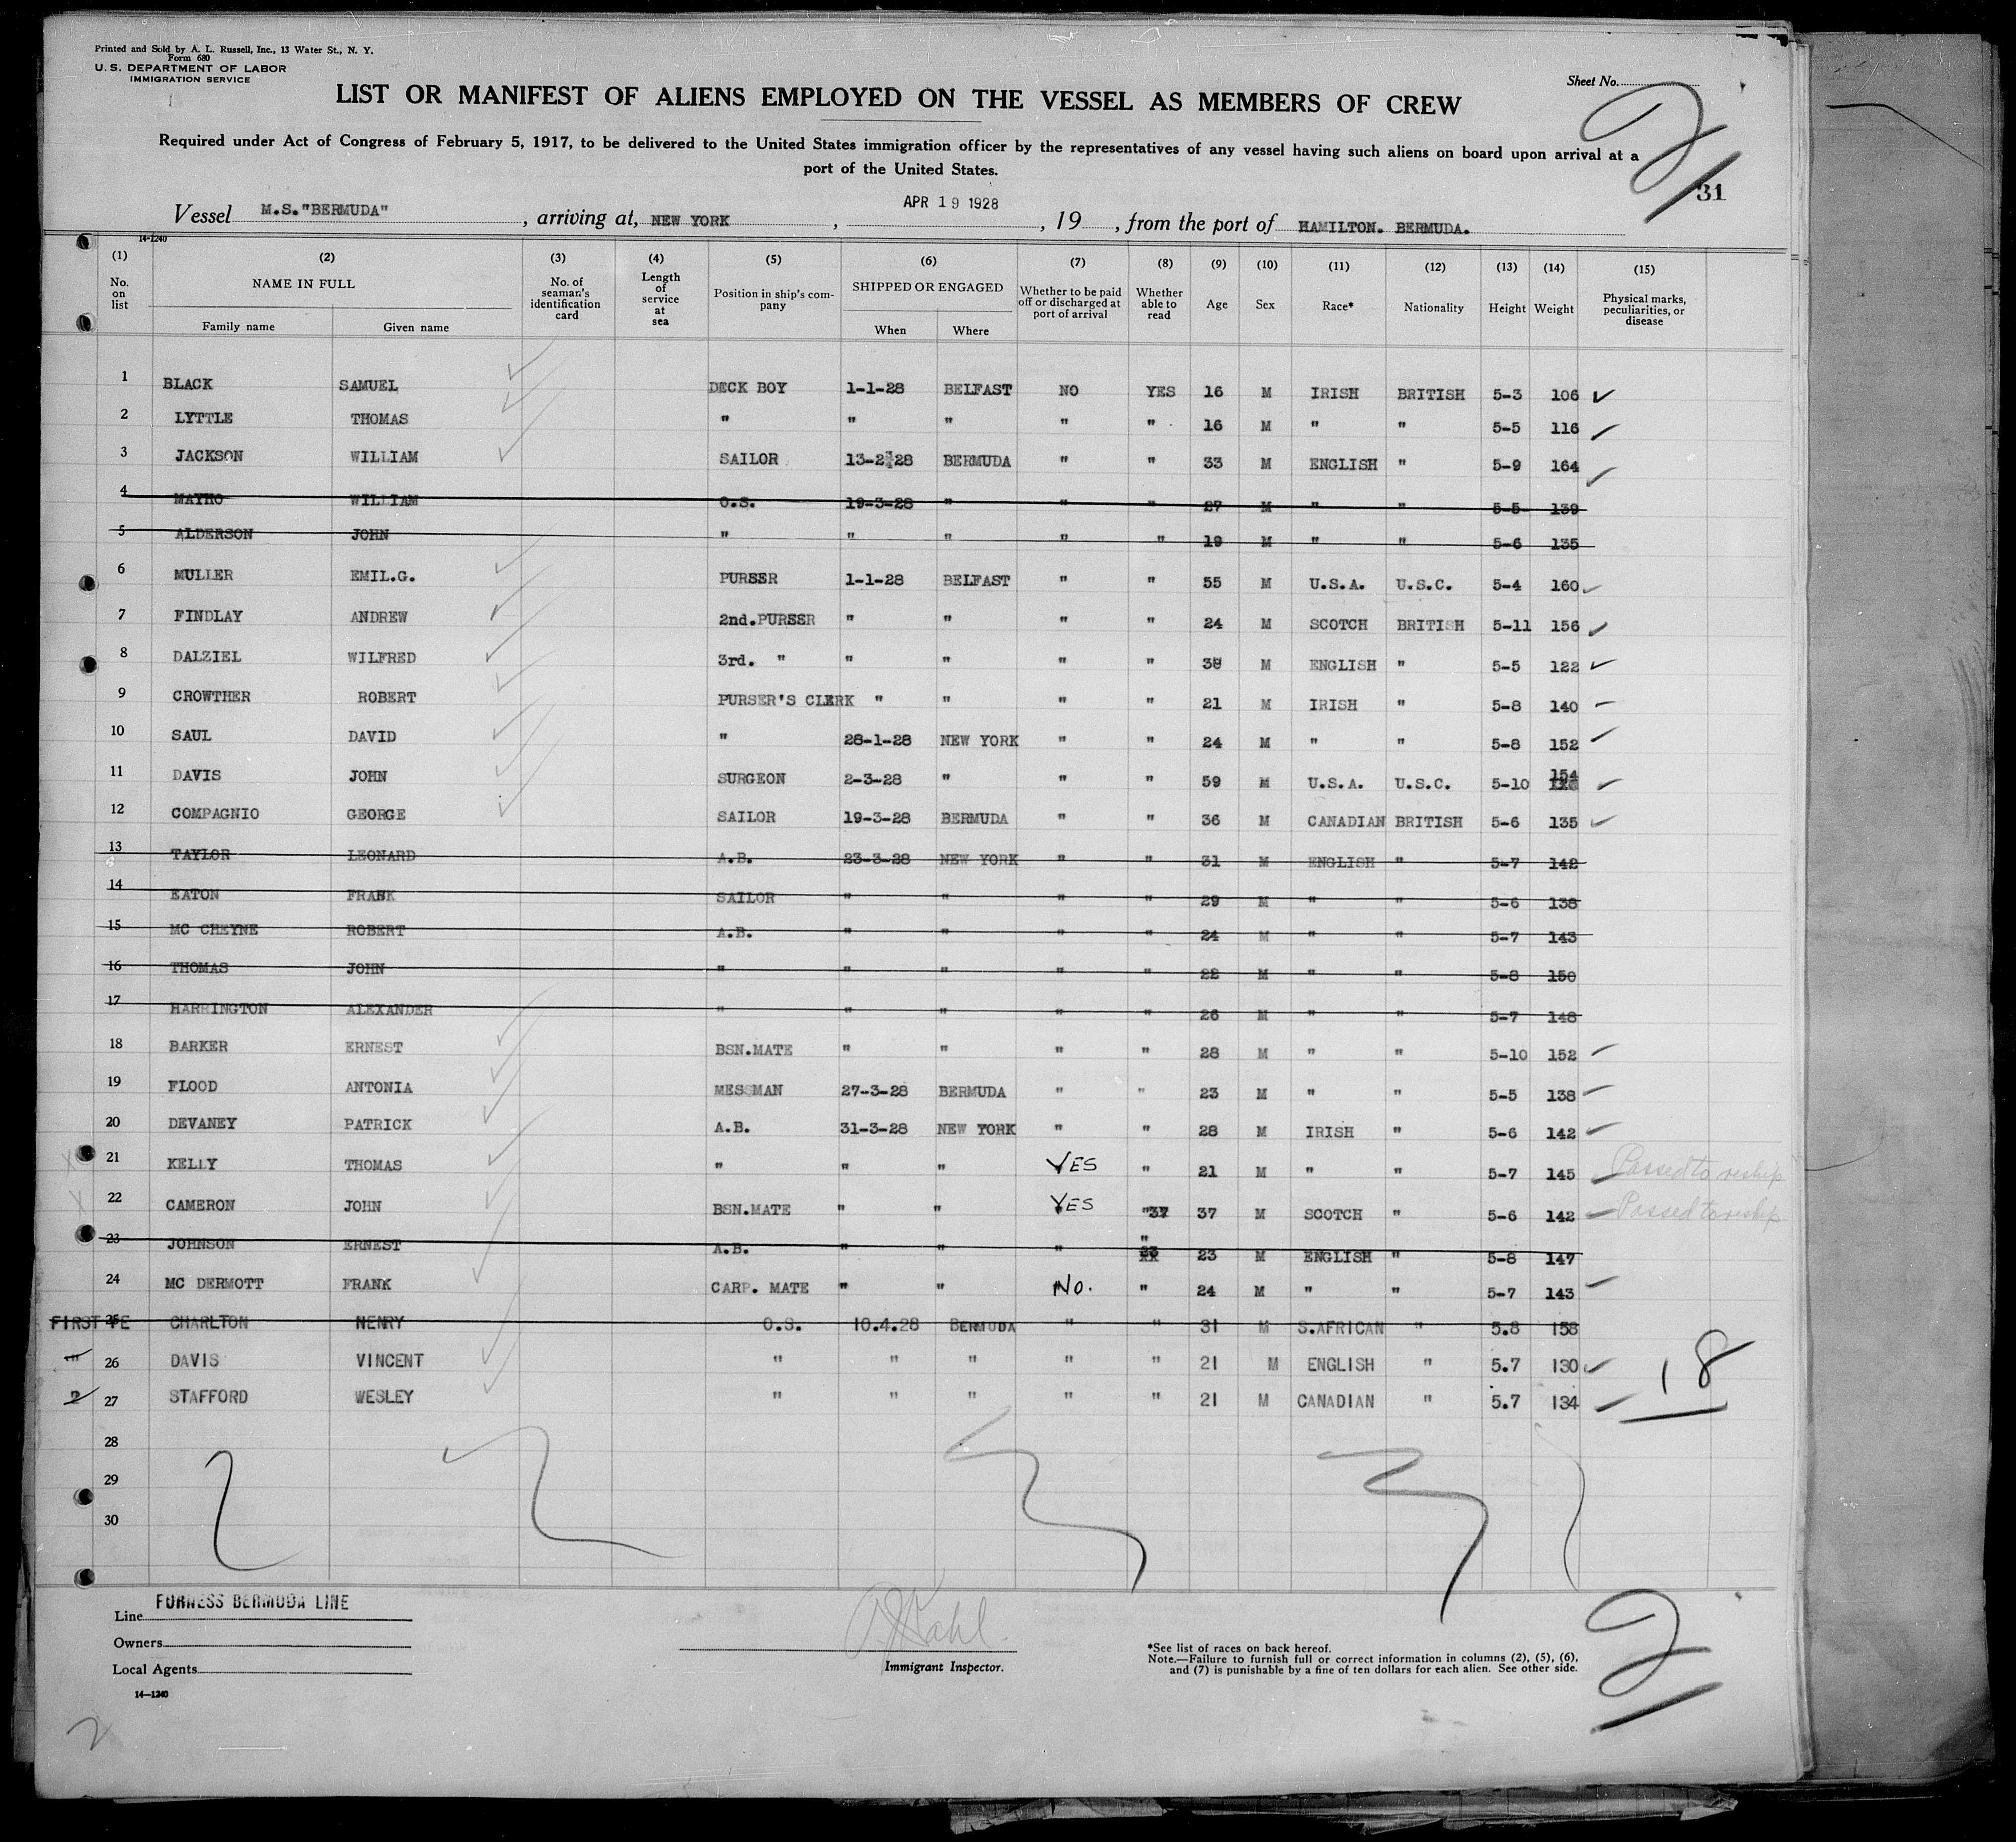 Printed and Sold by A. L. Russell, Inc., 13 Water St., N. Y.
Form 680
U. S. DEPARTMENT OF LABOR
IMMIGRATION SERVICE
Sheet No.
LIST OR MANIFEST OF ALIENS EMPLOYED ON THE VESSEL AS MEMBERS OF CREW
Required under Act of Congress of February 5, 1917, to be delivered to the United States immigration officer by the representatives of any vessel having such aliens on board upon arrival at a
port of the United States.
31
Vessel M.S."BERMUDA", arriving at, NEW YORK, APR 19 1928, 19, from the port of HAMILTON. BERMUDA.
14-1240
(1) (2) (3) (4) (5) (6) (7) (8) (9) (10) (11) (12) (13) (14) (15)
No. on list NAME IN FULL Family name Given name No. of seaman's identification card Length of service at sea Position in ship's company SHIPPED OR ENGAGED When Where Whether to be paid off or discharged at port of arrival Whether able to read Age Sex Race* Nationality Height Weight Physical marks, peculiarities, or disease
1 BLACK SAMUEL DECK BOY 1-1-28 BELFAST NO YES 16 M IRISH BRITISH 5-3 106
2 LYTTLE THOMAS " " " " " 16 M " " 5-5 116
3 JACKSON WILLIAM SAILOR 13-2-28 BERMUDA " " 33 M ENGLISH " 5-9 164
4 MAYHO WILLIAM O.S. 19-3-28 " " " 27 M " " 5-5 139
5 ALDERSON JOHN " " " " " 19 M " " 5-6 135
6 MULLER EMIL.G. PURSER 1-1-28 BELFAST " " 55 M U.S.A. U.S.C. 5-4 160
7 FINDLAY ANDREW 2nd.PURSER " " " " 24 M SCOTCH BRITISH 5-11 156
8 DALZIEL WILFRED 3rd. " " " " " 38 M ENGLISH " 5-5 122
9 CROWTHER ROBERT PURSER'S CLERK " " " " 21 M IRISH " 5-8 140
10 SAUL DAVID " 28-1-28 NEW YORK " " 24 M " " 5-8 152
11 DAVIS JOHN SURGEON 2-3-28 " " " 59 M U.S.A. U.S.C. 5-10 154
12 COMPAGNIO GEORGE SAILOR 19-3-28 BERMUDA " " 36 M CANADIAN BRITISH 5-6 135
13 TAYLOR LEONARD A.B. 23-3-28 NEW YORK " " 31 M ENGLISH " 5-7 142
14 EATON FRANK SAILOR " " " " 29 M " " 5-6 138
15 MC CHEYNE ROBERT A.B. " " " " 24 M " " 5-7 143
16 THOMAS JOHN " " " " " 22 M " " 5-8 150
17 HARRINGTON ALEXANDER " " " " " 26 M " " 5-7 148
18 BARKER ERNEST BSN.MATE " " " " 28 M " " 5-10 152
19 FLOOD ANTONIA MESSMAN 27-3-28 BERMUDA " " 23 M " " 5-5 138
20 DEVANEY PATRICK A.B. 31-3-28 NEW YORK " " 28 M IRISH " 5-6 142
21 KELLY THOMAS " " " YES " 21 M " " 5-7 145 Passed to reship
22 CAMERON JOHN BSN.MATE " " YES "37 37 M SCOTCH " 5-6 142 Passed to reship
23 JOHNSON ERNEST A.B. " " " " 23 23 M ENGLISH " 5-8 147
24 MC DERMOTT FRANK CARP. MATE " " No. " 24 M " " 5-7 143
FIRST TE 25 CHARLTON HENRY O.S. 10.4.28 BERMUDA " " 31 M S.AFRICAN " 5.8 158
" 26 DAVIS VINCENT " " " " " 21 M ENGLISH " 5.7 130
2 27 STAFFORD WESLEY " " " " " 21 M CANADIAN " 5.7 134
18
28
29
30
Line FURNESS BERMUDA LINE
Owners
Local Agents
14-1240
Immigrant Inspector.
*See list of races on back hereof.
Note.—Failure to furnish full or correct information in columns (2), (5), (6),
and (7) is punishable by a fine of ten dollars for each alien. See other side.
2